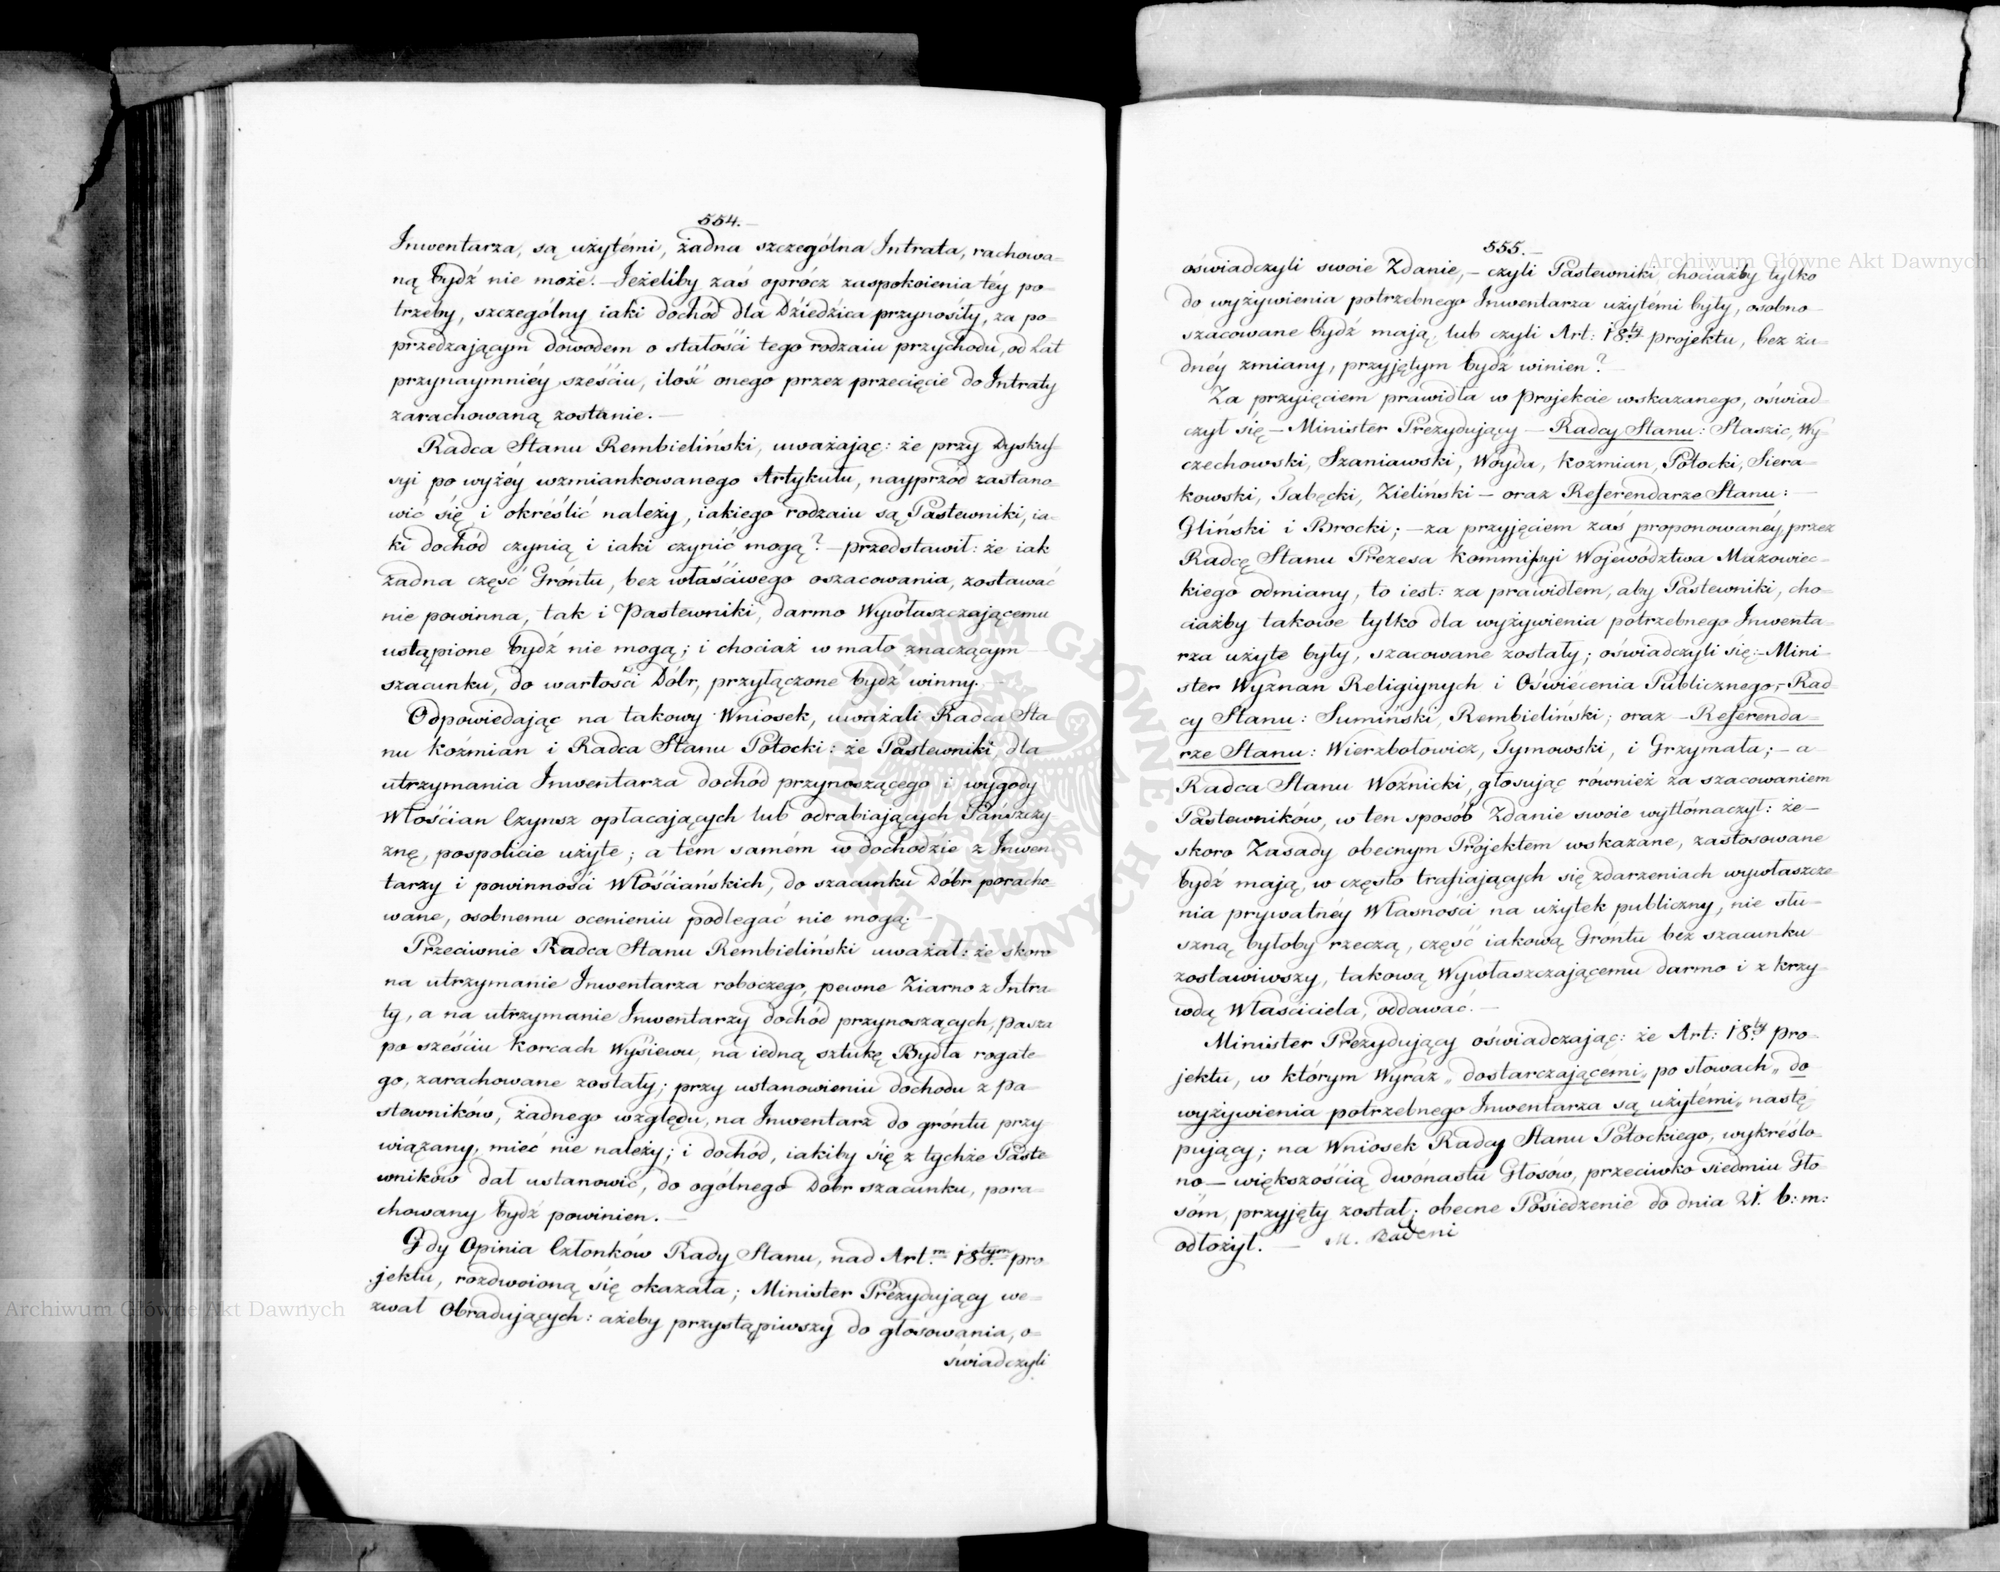 554.
Inwentarza, są użytémi, żadna szczególna Intrata, rachowa-
ną bydź nie może. – Jeżeliby zaś oprócz zaspokoienia téy po-
trzeby, szczególny iaki dochód dla Dziedzica przynosiły, za po-
przedzającym dowodem o stałości tego rodzaiu przychodu, od Lat
przynaymniéy sześciu, ilość onego przez przecięcie do Intraty
zarachowaną zostanie. –
Radca Stanu Rembieliński, uważając: że przy Dyskus-
syi po wyżéy wzmiankowanego Artykułu, nayprzód zastano-
wić się i określić należy, iakiego rodzaiu są Pastewniki, ia-
ki dochód czynią i iaki czynić mogą? – przedstawił: że iak
żadna część Gróntu, bez właściwego oszacowania, zostawać
nie powinna, tak i Pastewniki, darmo Wywłaszczającemu
ustąpione bydź nie mogą; i chociaż w mało znaczącym
szacunku, do wartości Dóbr, przyłączone bydź winny. –
Odpowiedając na takowy Wniosek, uważali Radca Sta-
nu Koźmian i Radca Stanu Potocki: że Pastewniki, dla
utrzymania Inwentarza dochód przynoszącego i wygody
Włościan Czynsz opłacających lub odrabiających Pańszczy-
znę, pospolicie użyte; a tem samém w dochodzie z Inwen-
tarzy i powinności Włościańskich, do szacunku Dóbr poracho-
wane, osobnemu ocenieniu podlegać nie mogą. –
Przeciwnie Radca Stanu Rembieliński uważał: że skoro
na utrzymanie Inwentarza roboczego, pewne Ziarno z Intra-
ty, a na utrzymanie Inwentarzy dochód przynoszących, pasza
po sześciu Korcach Wysiewu, na iedną sztukę Bydła rogate-
go, zarachowane zostały; przy ustanowieniu dochodu z pa-
stewników, żadnego względu, na Inwentarz do gróntu przy-
wiązany, mieć nie należy; i dochód, iakiby się z tychże Paste-
wników dał ustanowić, do ogólnego Dóbr szacunku, pora-
chowany bydź powinien. –
Gdy Opinia Członków Rady Stanu, nad Art.m 18.tym pro-
jektu, rozdwoioną się okazała; Minister Prezydujący we-
zwał Obradujących: ażeby przystąpiwszy do głosowania, o-
świadczyli
555. –
oświadczyli swoie Zdanie, – czyli Pastewniki chociażby tylko
do wyżywienia potrzebnego Inwentarza użytémi były, osobno
szacowane bydź mają, lub czyli Art: 18.ty projektu, bez ża-
dnéy zmiany, przyjętym bydź winien? –
Za przyięciem prawidła w Projekcie wskazanego, oświad-
czył się – Minister Prezydujący – Radcy Stanu: Staszic, Wy-
czechowski, Szaniawski, Woyda, Koźmian, Potocki, Siera-
kowski, Tabęcki, Zieliński – oraz Referendarze Stanu: –
Gliński i Brocki; – za przyjęciem zaś proponowanéy, przez
Radcę Stanu Prezesa Kommissyi Województwa Mazowiec-
kiego odmiany, to iest: za prawidłem, aby Pastewniki, cho-
ciażby takowe tylko dla wyżywienia potrzebnego Inwenta-
rza użyte były, szacowane zostały; oświadczyli się: – Mini-
ster Wyznań Religiynych i Oświécenia Publicznego, – Rad-
cy Stanu: Sumiński, Rembieliński; oraz – Referenda-
rze Stanu: Wierzbołowicz, Tymowski, i Grzymała; – a
Radca Stanu Woźnicki, głosując również za szacowaniem
Pastewników, w ten sposób Zdanie swoie wytłómaczył: że –
skoro Zasady obecnym Projektem wskazane, zastosowane
bydź mają, w często trafiających się zdarzeniach wywłaszcze-
nia prywatnéy Własności na użytek publiczny, nie słu-
szną byłoby rzeczą, część iakową Gróntu bez szacunku
zostawiwszy, takową Wywłaszczającemu darmo i z krzy-
wdą Właściciela, oddawać. –
Minister Prezydujący oświadczając: że Art: 18.ty pro-
jektu, w którym Wyraz „dostarczającemi„ po słowach „do
wyżywienia potrzebnego Inwentarza są użytémi„ nastę-
pujący; na Wniosek Radcy Stanu Potockiego, wykréślo-
no – większością dwónastu Głosów, przeciwko siedmiu Gło-
sóm, przyjęty został; obecne Posiedzenie do dnia 21. b: m:
odłożył. – M. Badeni
Archiwum Główne Akt Dawnych
Archiwum Główne Akt Dawnych
ARCHIWUM GŁÓWNE · AKT DAWNYCH ·